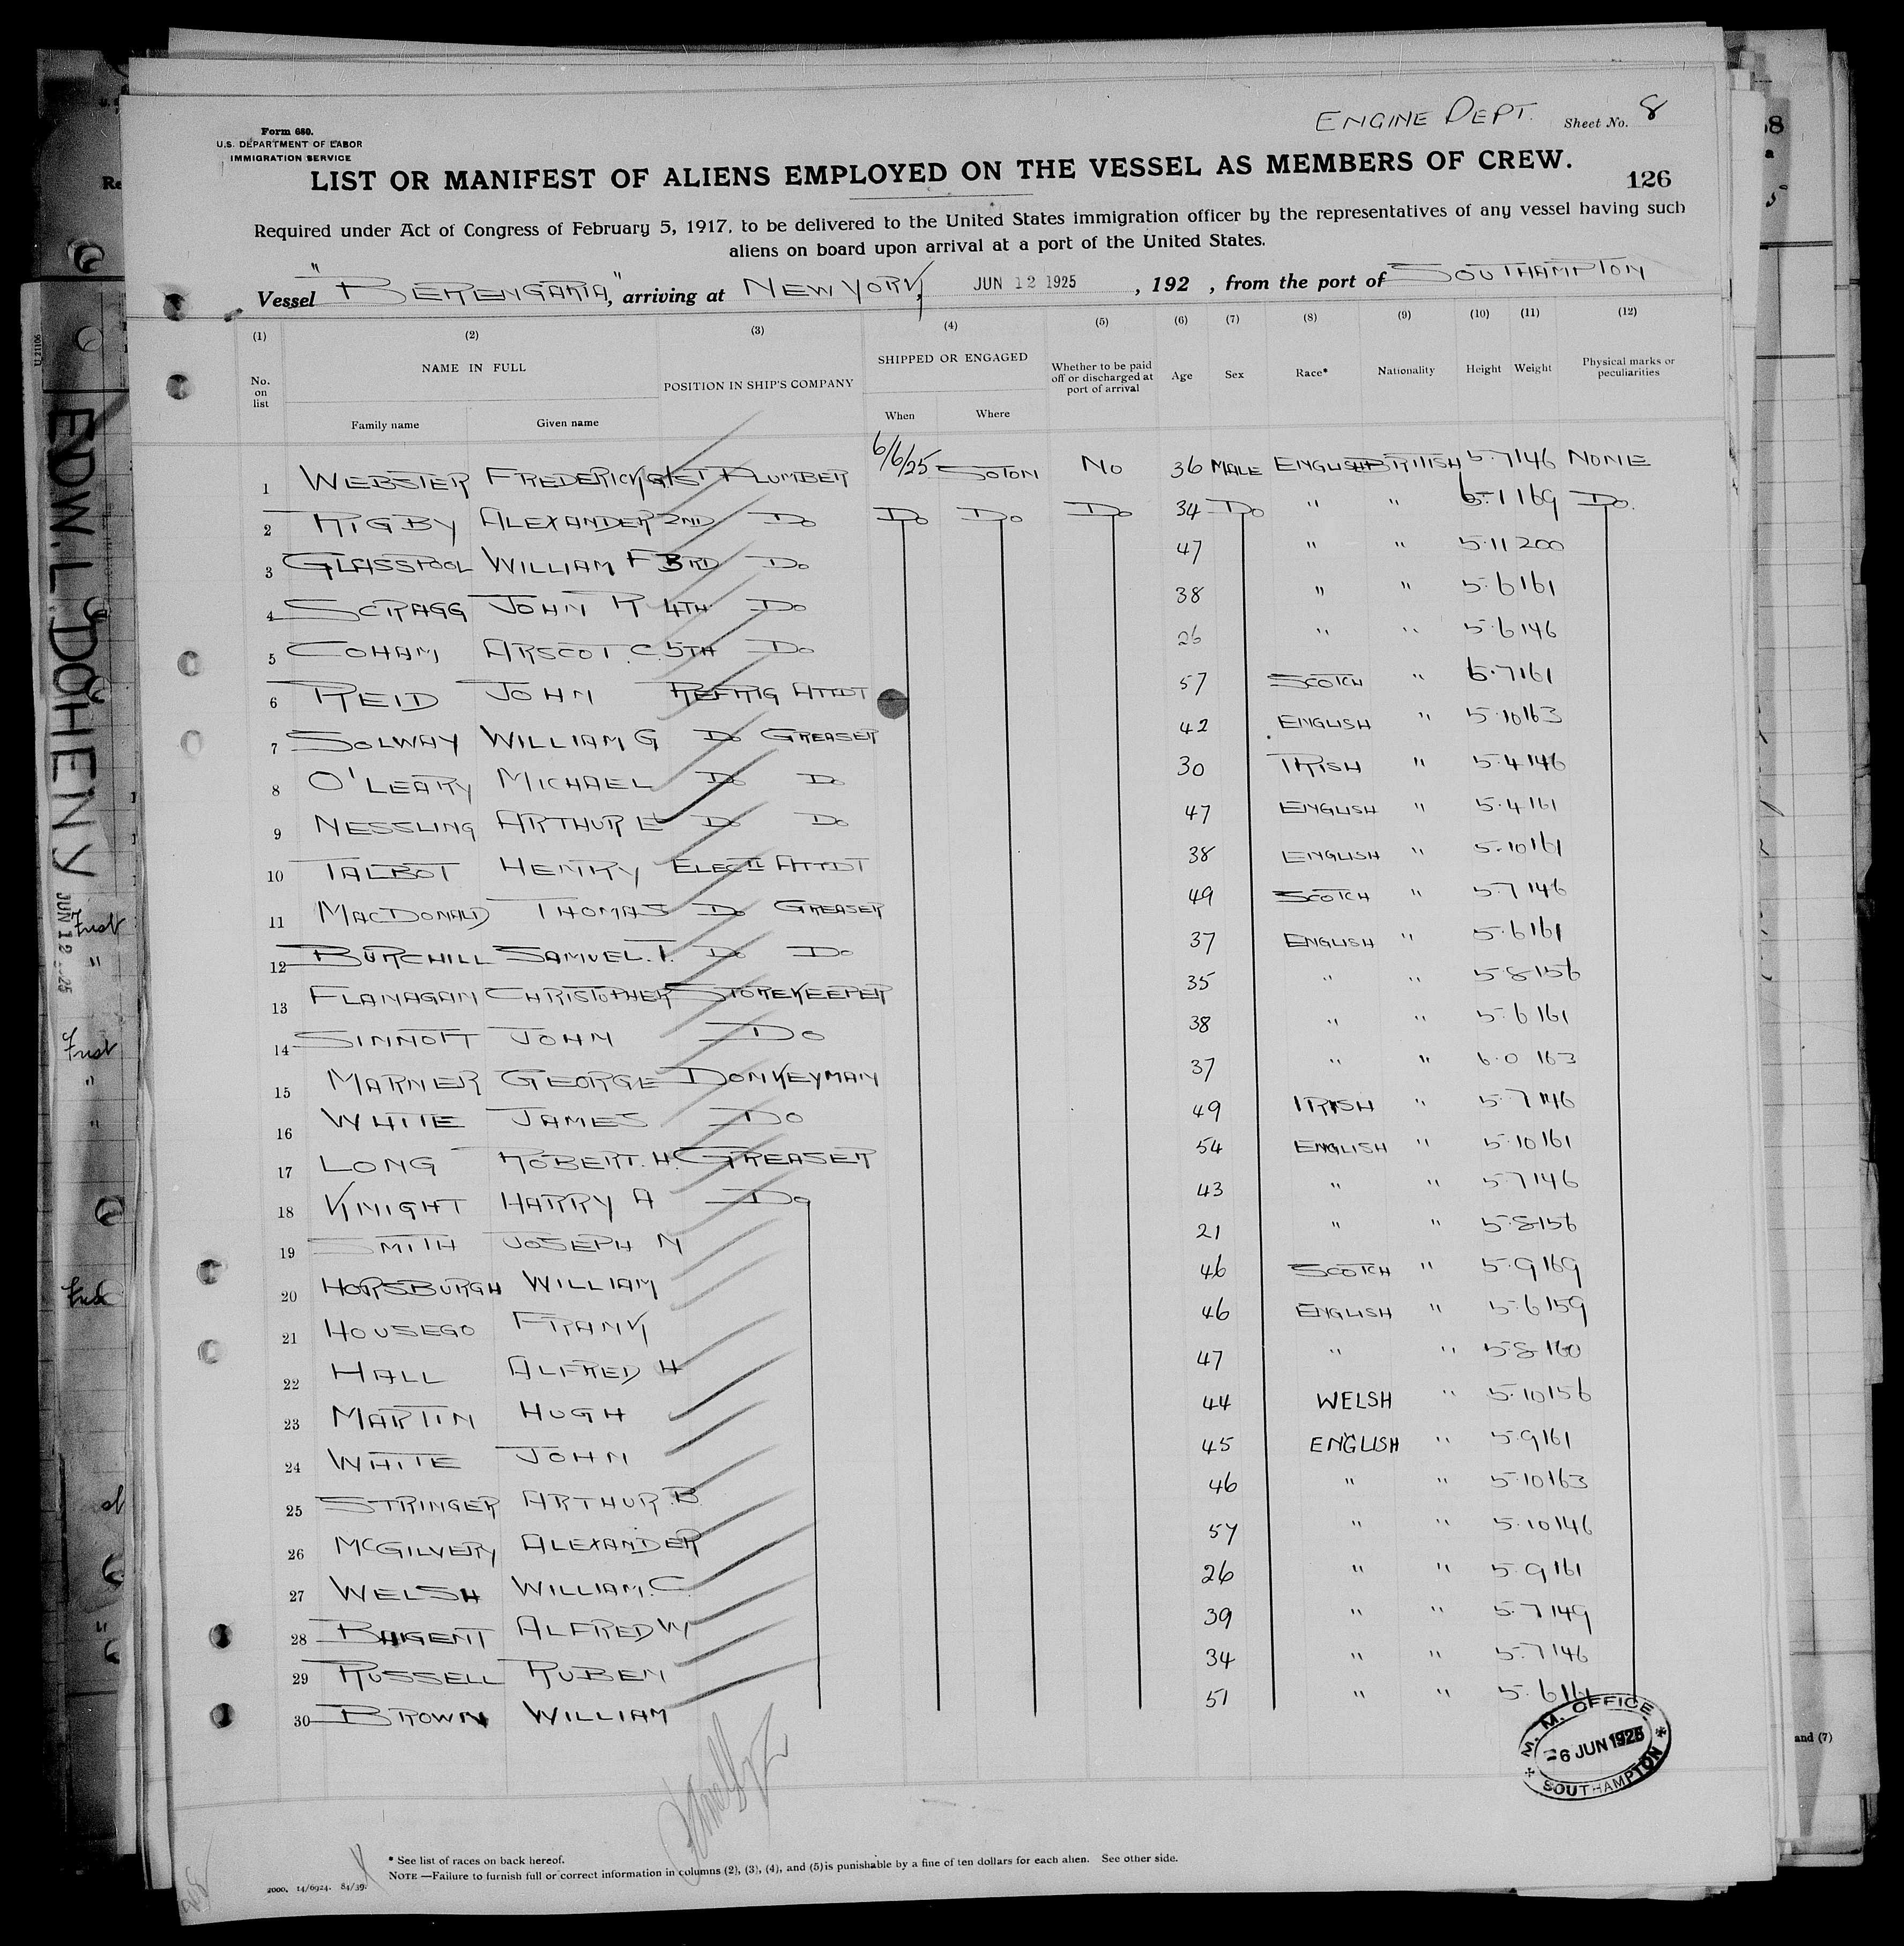 ENGINE DEPT. Sheet No. 8
Form 680.
U.S. DEPARTMENT OF LABOR
IMMIGRATION SERVICE
LIST OR MANIFEST OF ALIENS EMPLOYED ON THE VESSEL AS MEMBERS OF CREW.
126
Required under Act of Congress of February 5, 1917, to be delivered to the United States immigration officer by the representatives of any vessel having such
aliens on board upon arrival at a port of the United States.
Vessel "BERENGARIA", arriving at NEW YORK, JUN 12 1925, 192 , from the port of SOUTHAMPTON
(1) (2) (3) (4) (5) (6) (7) (8) (9) (10) (11) (12)
No. on list NAME IN FULL POSITION IN SHIP'S COMPANY SHIPPED OR ENGAGED Whether to be paid off or discharged at port of arrival Age Sex Race* Nationality Height Weight Physical marks or peculiarities
Family name Given name When Where
1 WEBSTER FREDERICK G 1ST PLUMBER 6/6/25 SOTON NO 36 MALE ENGLISH BRITISH 5.7 146 NONE
2 RIGBY ALEXANDER 2ND DO DO DO DO 34 DO " " 5.1 169 DO.
3 GLASSPOOL WILLIAM F 3RD DO 47 " " 5.11 200
4 SCRAGG JOHN R 4TH DO 38 " " 5.6 161
5 COHAM ARSCOT.C. 5TH DO 26 " " 5.6 146
6 REID JOHN REFRIG ATTDT 57 SCOTCH " 5.7 161
7 SOLWAY WILLIAM G DO GREASER 42 ENGLISH " 5.10 163
8 O'LEARY MICHAEL DO DO 30 IRISH " 5.4 146
9 NESSLING ARTHUR E DO DO 47 ENGLISH " 5.4 161
10 TALBOT HENRY ELECTL ATTDT 38 ENGLISH " 5.10 161
11 MACDONALD THOMAS DO GREASER 49 SCOTCH " 5.7 146
12 BURCHILL SAMUEL.T. DO DO 37 ENGLISH " 5.6 161
13 FLANAGAN CHRISTOPHER STOREKEEPER 35 " " 5.8 156
14 SINNOTT JOHN DO 38 " " 5.6 161
15 MARNER GEORGE DONKEYMAN 37 " " 6.0 163
16 WHITE JAMES DO 49 IRISH " 5.7 146
17 LONG ROBERT.H. GREASER 54 ENGLISH " 5.10 161
18 KNIGHT HARRY A DO 43 " " 5.7 146
19 SMITH JOSEPH N 21 " " 5.8 156
20 HORSBURGH WILLIAM 46 SCOTCH " 5.9 169
21 HOUSEGO FRANK 46 ENGLISH " 5.6 159
22 HALL ALFRED H 47 " " 5.8 160
23 MARTIN HUGH 44 WELSH " 5.10 156
24 WHITE JOHN 45 ENGLISH " 5.9 161
25 STRINGER ARTHUR.B. 46 " " 5.10 163
26 MCGILVERY ALEXANDER 57 " " 5.10 146
27 WELSH WILLIAM.C. 26 " " 5.9 161
28 BAIGENT ALFRED W 39 " " 5.7 149
29 RUSSELL RUBEN 34 " " 5.7 146
30 BROWN WILLIAM 51 " " 5.6 161
M. M. OFFICE
-6 JUN 1925
SOUTHAMPTON
* See list of races on back hereof.
NOTE.—Failure to furnish full or correct information in columns (2), (3), (4), and (5) is punishable by a fine of ten dollars for each alien. See other side.
2000. 14/6924. 84/39.
EDW. L. DOHENY
JUN 12 1925
U 21106
and (7)